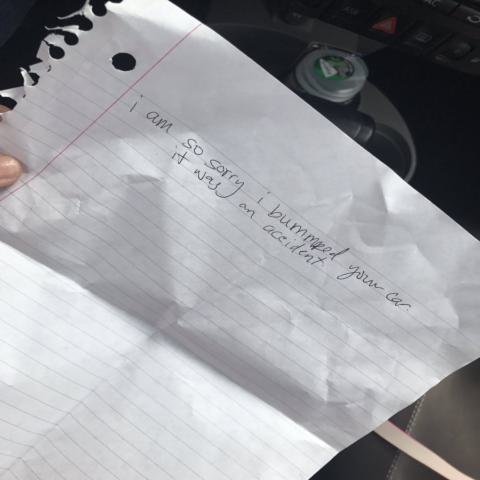 i am so sorry i bummped your car.
it was an accident